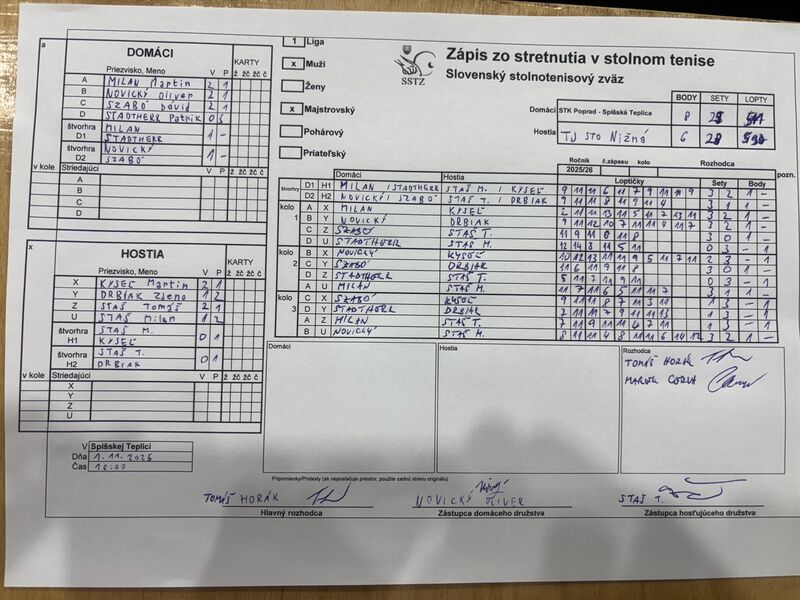 Zápis zo stretnutia v stolnom tenise
Slovenský stolnotenisový zväz
SSTZ
1 Liga
x Muži
Ženy
x Majstrovský
Pohárový
Priateľský
BODY SETY LOPTY
Domáci STK Poprad - Spišská Teplica 8
Hostia TJ STO Nižná 6 28
Ročník č.zápasu kolo Rozhodca
2025/26
a
DOMÁCI
KARTY
Priezvisko, Meno V P ž žč žč č
A MILAN Martin 2 1
B NOVICKÝ Oliver 2 1
C SZABÓ Dávid 2 1
D STADTHERR Patrik 0 3
štvorhra D1 MILAN STADTHERR 1 -
štvorhra D2 NOVICKÝ SZABÓ 1 -
v kole Striedajúci V P ž žč žč č
A
B
C
D
x
HOSTIA
KARTY
Priezvisko, Meno V P ž žč žč č
X KYSEĽ Martin 2 1
Y DRBIAK Zdeno 1 2
Z STAŠ Tomáš 2 1
U STAŠ Milan 1 2
štvorhra H1 STAŠ M. KYSEĽ 0 1
štvorhra H2 STAŠ T. DRBIAK 0 1
v kole Striedajúci V P ž žč žč č
X
Y
Z
U
Domáci Hostia Loptičky Sety Body pozn.
štvorhry D1 H1 MILAN / STADTHERR STAŠ M. / KYSEĽ 9 11 11 6 11 7 9 11 11 9 3 2 1 -
D2 H2 NOVICKÝ / SZABÓ STAŠ T. / DRBIAK 9 11 11 8 11 9 11 4 3 1 1 -
kolo 1 A X MILAN KYSEĽ 2 11 11 13 11 5 11 7 13 11 3 2 1 -
B Y NOVICKÝ DRBIAK 9 11 12 10 7 11 11 4 11 7 3 2 1 -
C Z SZABÓ STAŠ T. 11 9 11 6 11 8 3 0 1 -
D U STADTHERR STAŠ M. 12 14 8 11 5 11 0 3 - 1
kolo 2 B X NOVICKÝ 10 12 13 11 11 9 5 11 7 11 2 3 - 1
C Y SZABÓ DRBIAK 11 6 11 9 11 8 3 0 1 -
D Z STADTHERR STAŠ T. 0 3 - 1
A U MILAN STAŠ M. 11 7 11 6 5 11 11 7 3 1 1 -
kolo 3 C X SZABÓ 9 11 11 8 7 11 3 11 1 3 - 1
D Y STADTHERR DRBIAK 7 11 11 7 9 11 11 13 1 3 - 1
A Z MILAN STAŠ T. 7 11 9 11 11 4 7 11 1 3 - 1
B U NOVICKÝ STAŠ M. 3 2 1 -
Domáci
Hostia
Rozhodca
TOMÁŠ HORÁK
V Spišskej Teplici
Dňa 1.11.2025
Čas
Pripomienky/Protesty (ak nepostačuje priestor, použite zadnú stranu originálu)
TOMÁŠ HORÁK
NOVICKÝ OLIVER
STAŠ T.
Hlavný rozhodca
Zástupca domáceho družstva
Zástupca hosťujúceho družstva